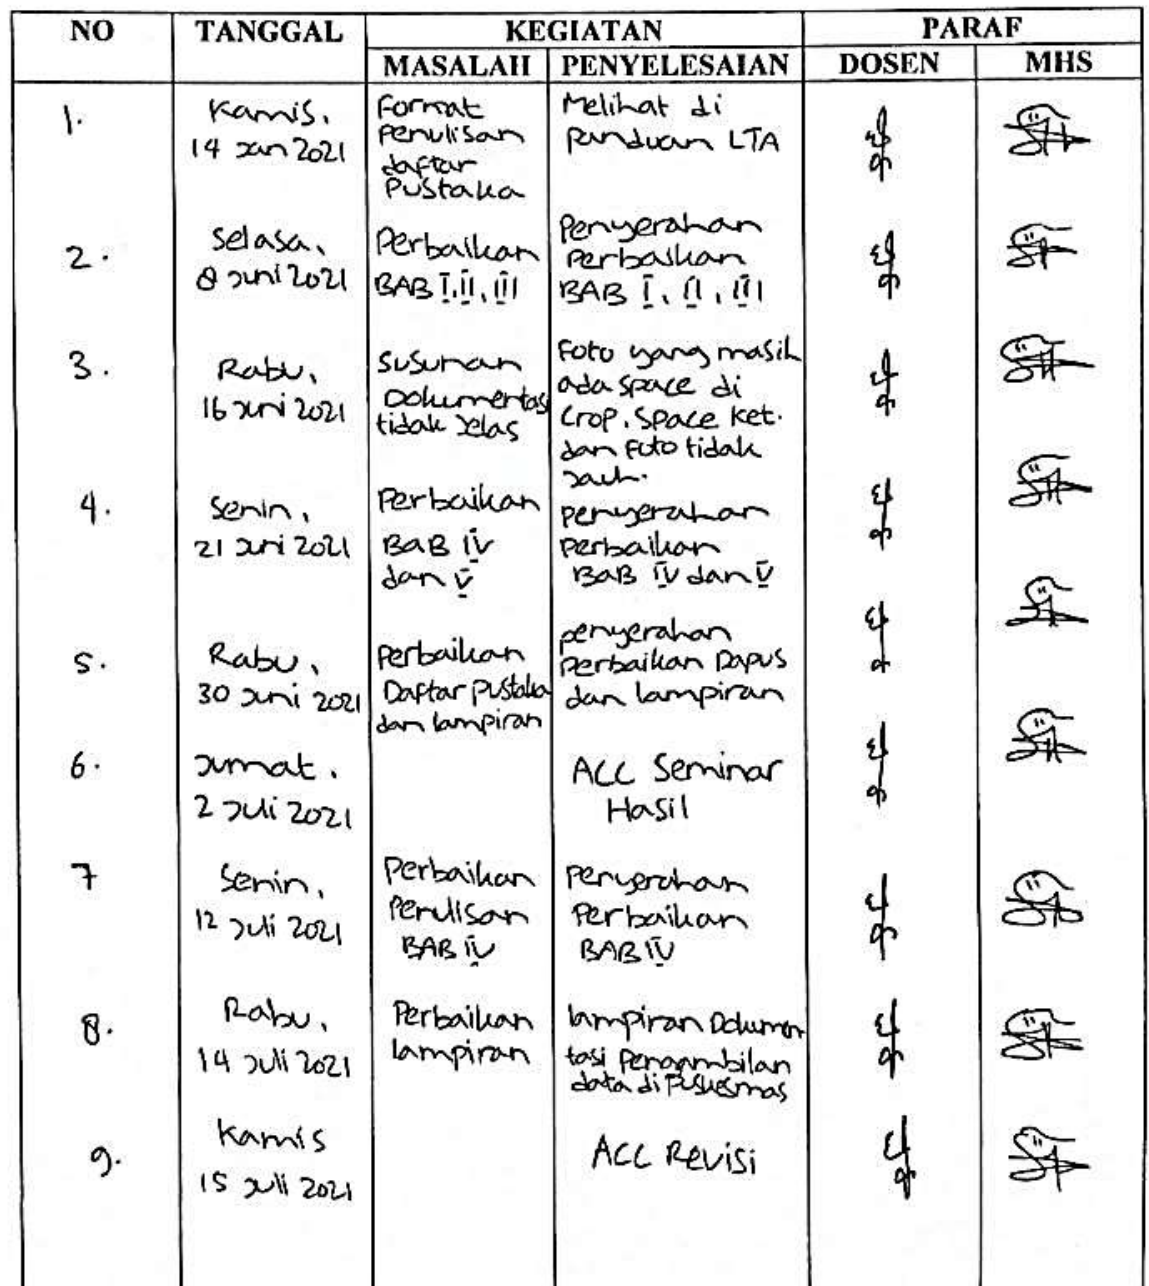 NO TANGGAL KEGIATAN PARAF
MASALAH PENYELESAIAN DOSEN MHS
1. Kamis, 14 Jan 2021
Format
Penulisan
daftar
Pustaka
Melihat di
Panduan LTA
2. Selasa, 8 Juni 2021
Perbaikan
BAB I, II, III
Penyerahan
Perbaikan
BAB I, II, III
3. Rabu, 16 Juni 2021
Susunan
Dokumentasi
tidak Jelas
Foto yang masih
ada space di
Crop. Space Ket.
dan Foto tidak
Jauh.
4. Senin, 21 Juni 2021
Perbaikan
BAB IV
dan V
penyerahan
perbaikan
BAB IV dan V
5. Rabu, 30 Juni 2021
Perbaikan
Daftar Pustaka
dan lampiran
penyerahan
Perbaikan Dapus
dan lampiran
6. Jumat, 2 Juli 2021
ACC Seminar
Hasil
7 Senin, 12 Juli 2021
Perbaikan
Penulisan
BAB IV
Penyerahan
Perbaikan
BAB IV
8. Rabu, 14 Juli 2021
Perbaikan
lampiran
lampiran Dokumen
tasi Pengambilan
data di Puskesmas
9. Kamis 15 Juli 2021
ACC Revisi